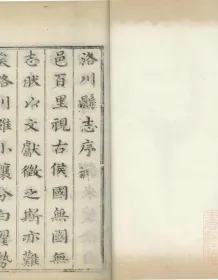 洛川縣志序
邑百里視古侯國無國無
志狀以文獻徵之斯亦難
矣洛川雖小壤分白翟勢